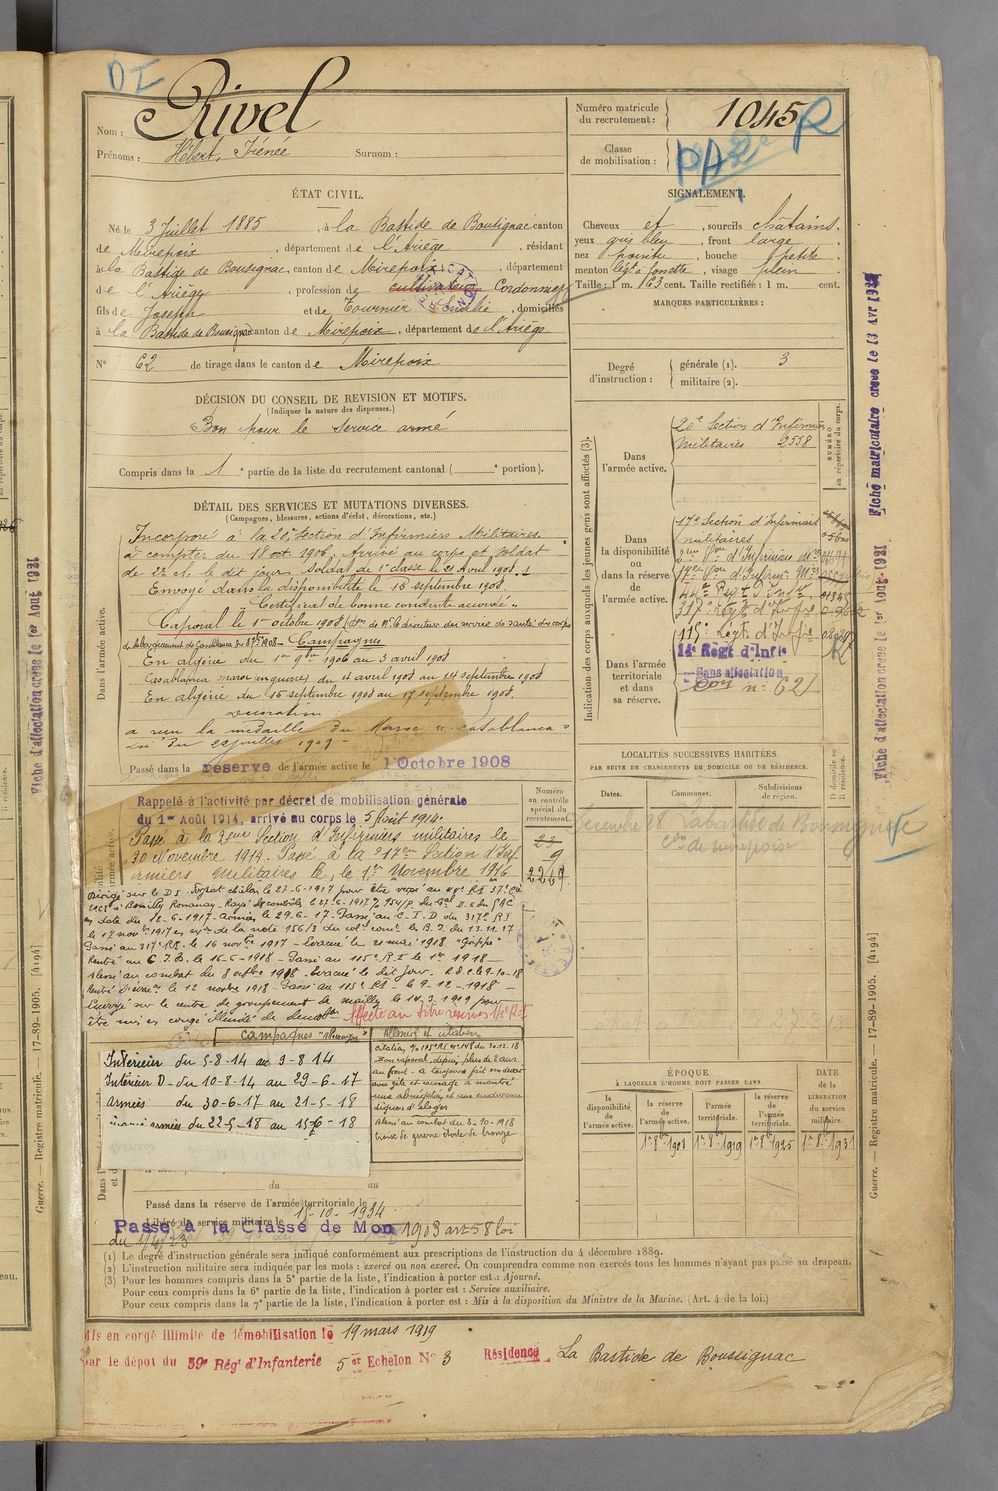 DI
Nom : Rivel
Prénoms : Hébert, Irénée Surnom :
Numéro matricule du recrutement : 1045 R
Classe de mobilisation :
PAR
ÉTAT CIVIL.
Né le 3 Juillet 1885, à la Bastide de Bousignac canton
de Mirepoix, département de l'Ariège, résidant
à la Bastide de Bousignac, canton de Mirepoix, département
de l'Ariège, profession de cultivateur Cordonnier
fils de Joseph et de Tournier, domiciliés
à la Bastide de Bousignac canton de Mirepoix, département de l'Ariège
N° 62 de tirage dans le canton de Mirepoix
DÉCISION DU CONSEIL DE REVISION ET MOTIFS.
(Indiquer la nature des dispenses.)
Bon pour le service armé
Compris dans la 1e partie de la liste du recrutement cantonal ( e portion).
DÉTAIL DES SERVICES ET MUTATIONS DIVERSES.
(Campagnes, blessures, actions d'éclat, décorations, etc.)
Dans l'armée active.
Incorporé à la 20e Section d'Infirmiers Militaires.
à compter du 18 oct. 1906. Arrivé au corps et soldat
de 2e cl. le dit jour. Soldat de 1e classe le 21 Avril 1908.
Envoyé dans la disponibilité le 18 septembre 1908.
Certificat de bonne conduite accordé
Caporal le 1er octobre 1908
Campagnes
En algérie du 1er 9bre 1906 au 3 avril 1908
Casablanca maroc (en guerre) du 4 avril 1908 au 14 septembre 1908
En algérie du 15 septembre 1908 au 17 septembre 1908.
Décoration
a reçu la médaille du Maroc "Casablanca"
Loi du juillet 1909
Passé dans la réserve de l'armée active le 1 Octobre 1908
Rappelé à l'activité par décret de mobilisation générale
du 1er Août 1914, arrivé au corps le 5 Août 1914.
Passé à la 2eme Section d'Infirmiers militaires le
30 Novembre 1914. Passé à la 17eme Section d'Inf
irmiers Militaires le, le 1er Novembre 1916
en date du 12-6-1917. armées le 29-6-17. Passé au C.I.D du 317e RI
le 17 novbre 1917 en exon de la note 156/3 du col. comt le B.I. du 13-11-17
Passé au 317e RI. le 16 novbre 1917 - Evacué le 21 mai 1918 "Grippe"
Rentré au C.I.D. le 16-6-1918 - Passé au 115e R.I. le 1918 -
Blessé au combat du 8 octbre 1918. Evacué le dit jour.
Rentré le 12 novbre 1918 - Passé au 115e RI - le 9-12-1918 -
Envoyé sur le centre de groupement de mailly le 14.3.1919 pour
être mis en congé illimité de démobon Affecté au titre réserves 14e RI
Numéro au contrôle spécial du recrutement.
23
9
2269
Campagnes "Allemagne"
Intérieur du 5-8-14 au 9-8-14
Intérieur D- du 10-8-14 au 29-6-17
armées du 30-6-17 au 21-5-18
du 22-5-18 au 15-6-18
Blessures et citation
Citation, O/ 115e RI no 148 du 30.12.18
Bon caporal, depuis plus de 2 ans
au front - a toujours fait son devoir
avec zèle et courage a montré
une abnégation et une endurance
dignes d'éloges
Blessé au combat du 8-10-1918
Croix de guerre étoile de bronze
du au
Passé dans la réserve de l'armée territoriale le
Libéré du service militaire le 15-10-1934
Passé à la Classe de Mon 1903 art 58 loi
du 1/4/23
SIGNALEMENT.
Cheveux et, sourcils châtains.
yeux gris bleu, front large
nez pointu, bouche petite
menton, visage plein
Taille : 1 m. 63 cent. Taille rectifiée : 1 m. cent.
MARQUES PARTICULIÈRES :
Degré d'instruction : générale (1). 3
militaire (2).
Indication des corps auxquels les jeunes gens sont affectés (3).
NUMÉRO au répertoire du corps.
Dans l'armée active. 20e Section d'Infirmiers
Militaires 2558
Dans la disponibilité ou dans la réserve de l'armée active.
17e Section d'Infirmiers
militaires
317e Régt d'Infie
115e Régt d'Infie
Dans l'armée territoriale et dans sa réserve.
14e Régt d'Infie
Sans affectation
LOCALITÉS SUCCESSIVES HABITÉES
PAR SUITE DE CHANGEMENTS DE DOMICILE OU DE RÉSIDENCE.
Dates. Communes. Subdivisions de région. D domicile ou R résidence.
Décembre 28 Labastide de Bousignac
Con de mirepoix
ÉPOQUE
À LAQUELLE L'HOMME DOIT PASSER DANS
la disponibilité de l'armée active. la réserve de l'armée active. l'armée territoriale. la réserve de l'armée territoriale. DATE de la LIBÉRATION du service militaire.
1er 8bre 1908 1er 8bre 1919 1er 8bre 1925 1er 8bre 1931
(1) Le degré d'instruction générale sera indiqué conformément aux prescriptions de l'instruction du 4 décembre 1889.
(2) L'instruction militaire sera indiquée par les mots : exercé ou non exercé. On comprendra comme non exercés tous les hommes n'ayant pas passé au drapeau.
(3) Pour les hommes compris dans la 5e partie de la liste, l'indication à porter est : Ajourné.
Pour ceux compris dans la 6e partie de la liste, l'indication à porter est : Service auxiliaire.
Pour ceux compris dans la 7e partie de la liste, l'indication à porter est : Mis à la disposition du Ministre de la Marine. (Art. 4 de la loi.)
Mis en congé illimité de démobilisation le 19 mars 1919
par le dépôt du 59e Régt d'Infanterie 5er Echelon N° 3 Résidence La Bastide de Boussignac
Fiche matriculaire créée le 13 Avr 1921
Fiche d'affectation créée le 1er Août 1921
Guerre. — Registre matricule. — 17-89-1905. [4194]
Fiche d'affectation créée le 1er Août 1921
Guerre. — Registre matricule. — 17-89-1905. [4194]